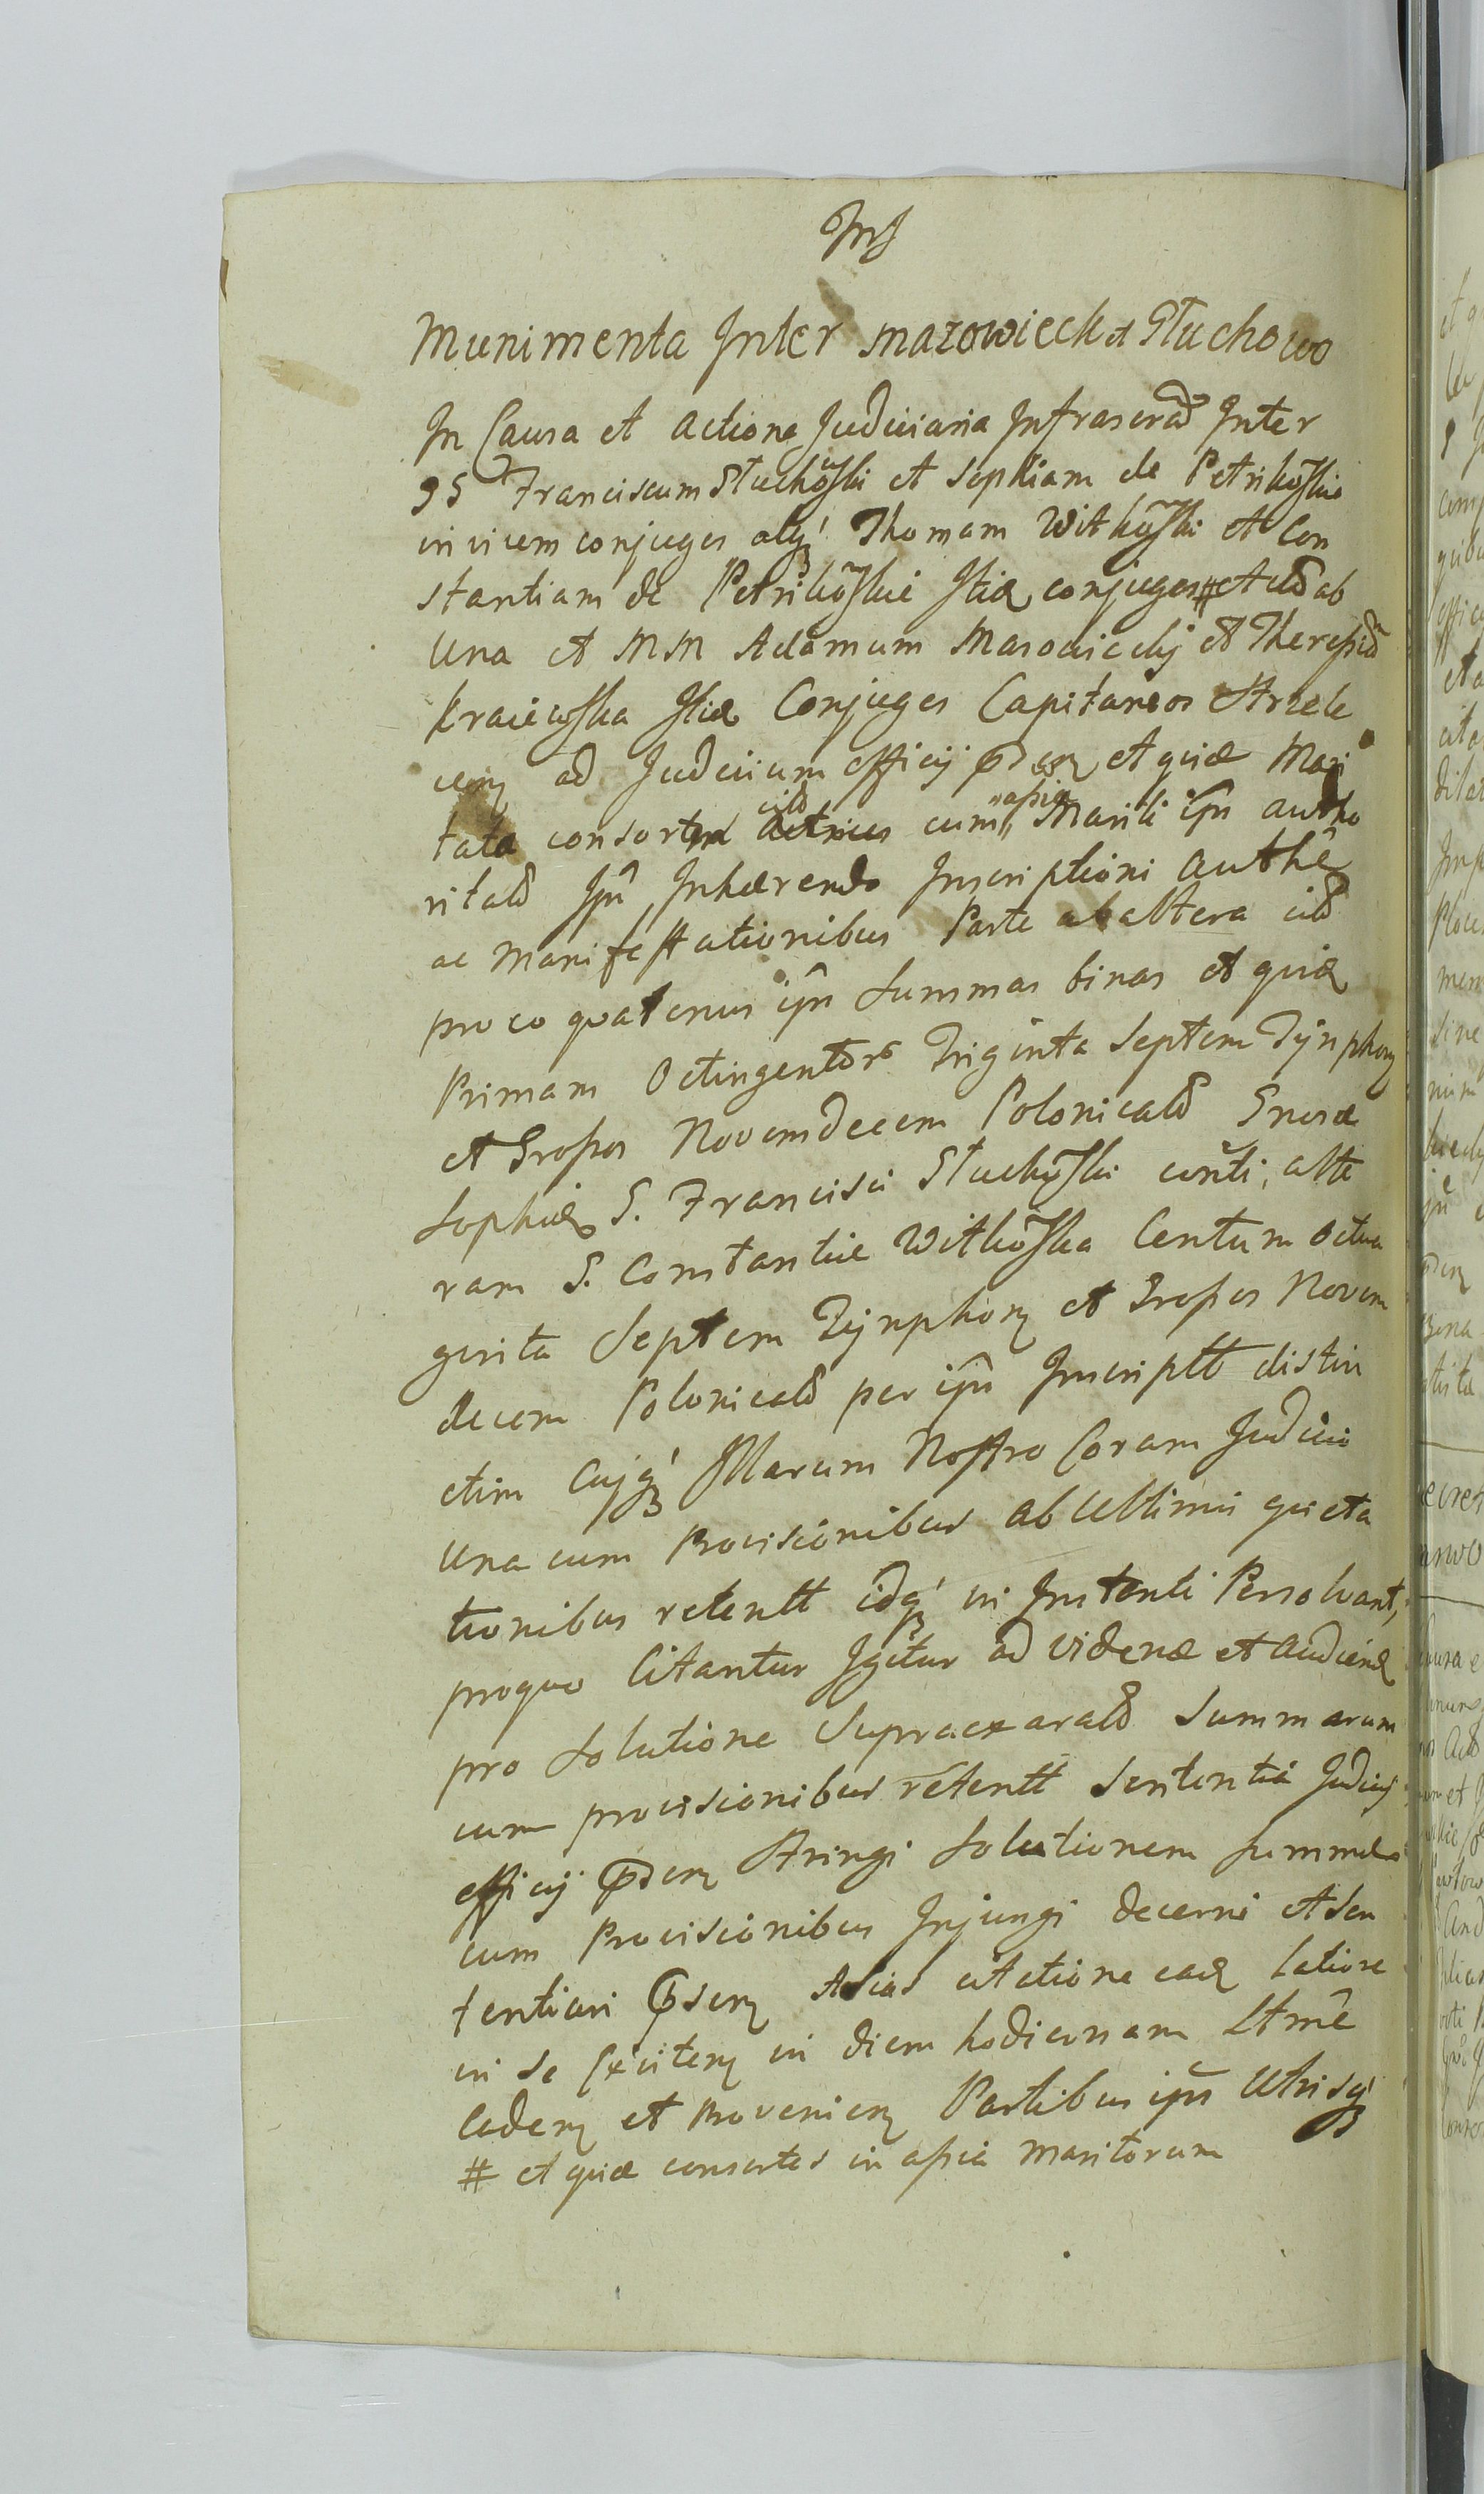 Munimenta Inter Mazowieck et Głuchowo
In Causa et Actione Judiciaria Infrascrad Inter
GG Franciscum Głuchoski et Sophiam de Petrikoskie
invicem conjuges atq Thomam Witkoski et Con
stantiam de Petrikoskie Itid conjuges # Actld ab
Una et MM Adamum Mazowiecky et Theressia
Kraiewska Itid Conjuges Capitaneos Strzele
cen ad Judicium officij psen et quid Mari
tata consorte citd cum assia Mariti ipn autho
ritatd Ipn Inhaerendo Inscriptioni authen
ac Manifestationibus Parte ab altera citd
pro eo quatenus ipn Summas binas et quid
Primam Octingentor Triginta Septem Tynphon
et Grossos Novemdecem Polonicald Gnosae
Sophiae G. Francisci Głuchoski conti, alte
ram G. Constantiae Witkoska Centum Octua
ginta Septem Tynphon et Grossos Novem
decem Polonicald per ipn Inscriptt distin
ctim Cujq Illarum Nostro Coram Judicio
Una cum Provisionibus ab Ultimis quieta
tionibus retentt idq in Instenti Persolvant,
proquo Citantur Igitur ad Vidend et Audiend
pro Solutione Supraexarald Summarum
cum provisionibus retentt Sententia Judicij
officij psen Stringi Solutionem Summd
cum Provisionibus Injungi decerni et Sen
tentiari psen Alias citatione ead Latiore
in se Existen in diem hodiernam Ltme
Caden et Provenien Partibus ipn Utrisq
# et quid consortes in assia Maritorum